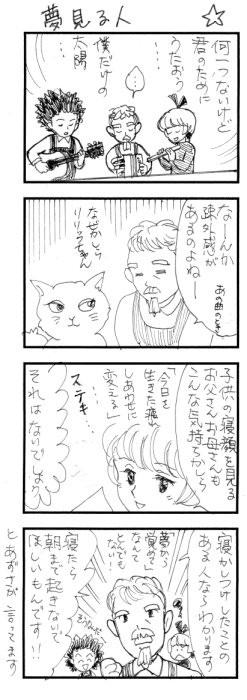 夢見る人
☆
何一つないけど
君のために
うたおう
僕だけの
太陽
なーんか
疎外感が
あるのよねー
あの曲のとき
なぜかしら
リリィちゃん
子供の寝顔を見る
お父さんお母さんも
こんな気持ちかしら
「今日を
生きた証
しあわせに
変える」
ステキ…
それはないでしょ
寝かしつけしたことの
ある人ならわかります
「夢から
覚めて」
なんて
とんでも
ない!
寝たら
朝まで起きないで
ほしいもんです!!
とあずさが言ってます